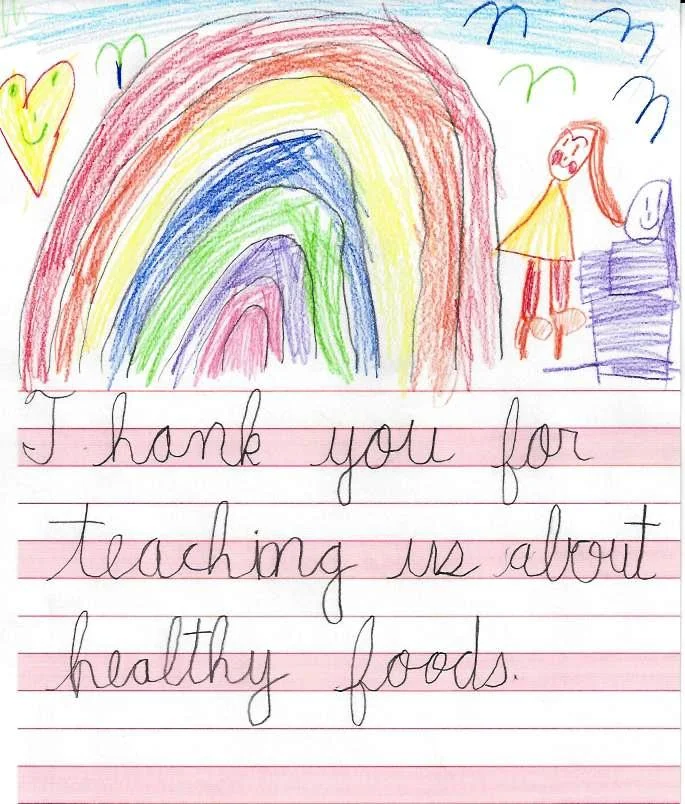 Thank you for
teaching us about
healthy foods.